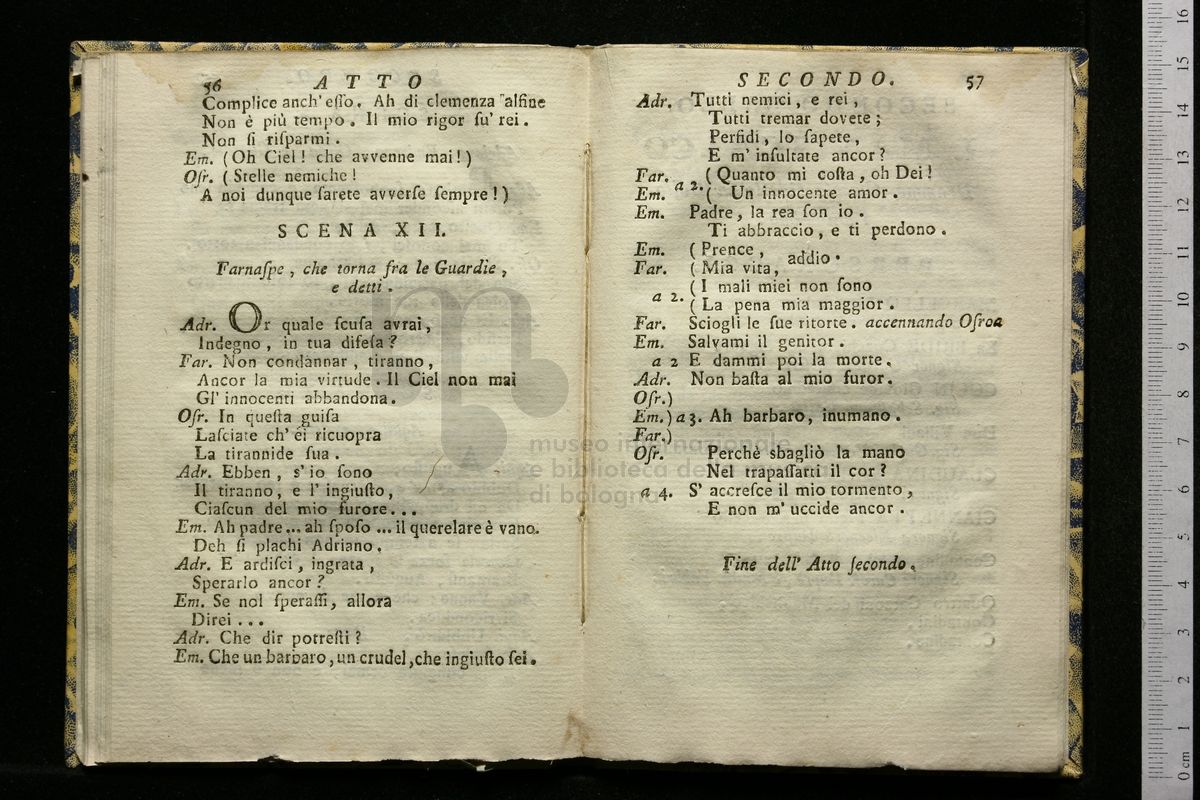 56 ATTO
Complice anch' eſſo. Ah di clemenza alfine
Non è più tempo. Il mio rigor ſu' rei.
Non ſi riſparmi.
Em. (Oh Ciel! che avvenne mai!)
Oſr. (Stelle nemiche!
A noi dunque ſarete avverſe ſempre!)
SCENA XII.
Farnaſpe, che torna fra le Guardie,
e detti.
Adr. Or quale ſcuſa avrai,
Indegno, in tua difeſa?
Far. Non condannar, tiranno,
Ancor la mia virtude. Il Ciel non mai
Gl' innocenti abbandona.
Oſr. In queſta guiſa
Laſciate ch' ei ricuopra
La tirannide ſua.
Adr. Ebben, s' io ſono
Il tiranno, e l' ingiuſto,
Ciaſcun del mio furore...
Em. Ah padre... ah ſpoſo... il querelare è vano.
Deh ſi plachi Adriano.
Adr. E ardiſci, ingrata,
Sperarlo ancor?
Em. Se nol ſperaſſi, allora
Direi...
Adr. Che dir potreſti?
Em. Che un barbaro, un crudel, che ingiuſto ſei.
SECONDO. 57
Adr. Tutti nemici, e rei,
Tutti tremar dovete;
Perfidi, lo ſapete,
E m' inſultate ancor?
Far. (Quanto mi coſta, oh Dei!
a 2.
Em. ( Un innocente amor.
Em. Padre, la rea ſon io.
Ti abbraccio, e ti perdono.
Em. (Prence,
addio.
Far. (Mia vita,
(I mali miei non ſono
a 2.
(La pena mia maggior.
Far. Sciogli le ſue ritorte. accennando Oſroa
Em. Salvami il genitor.
a 2 E dammi poi la morte.
Adr. Non baſta al mio furor.
Oſr.)
Em.) a 3. Ah barbaro, inumano.
Far.)
Oſr. Perchè sbagliò la mano
Nel trapaſſarti il cor?
a 4. S' accreſce il mio tormento,
E non m' uccide ancor.
Fine dell' Atto ſecondo.
museo internazionale
e biblioteca de
di bologna
0 cm 1 2 3 4 5 6 7 8 9 10 11 12 13 14 15 16